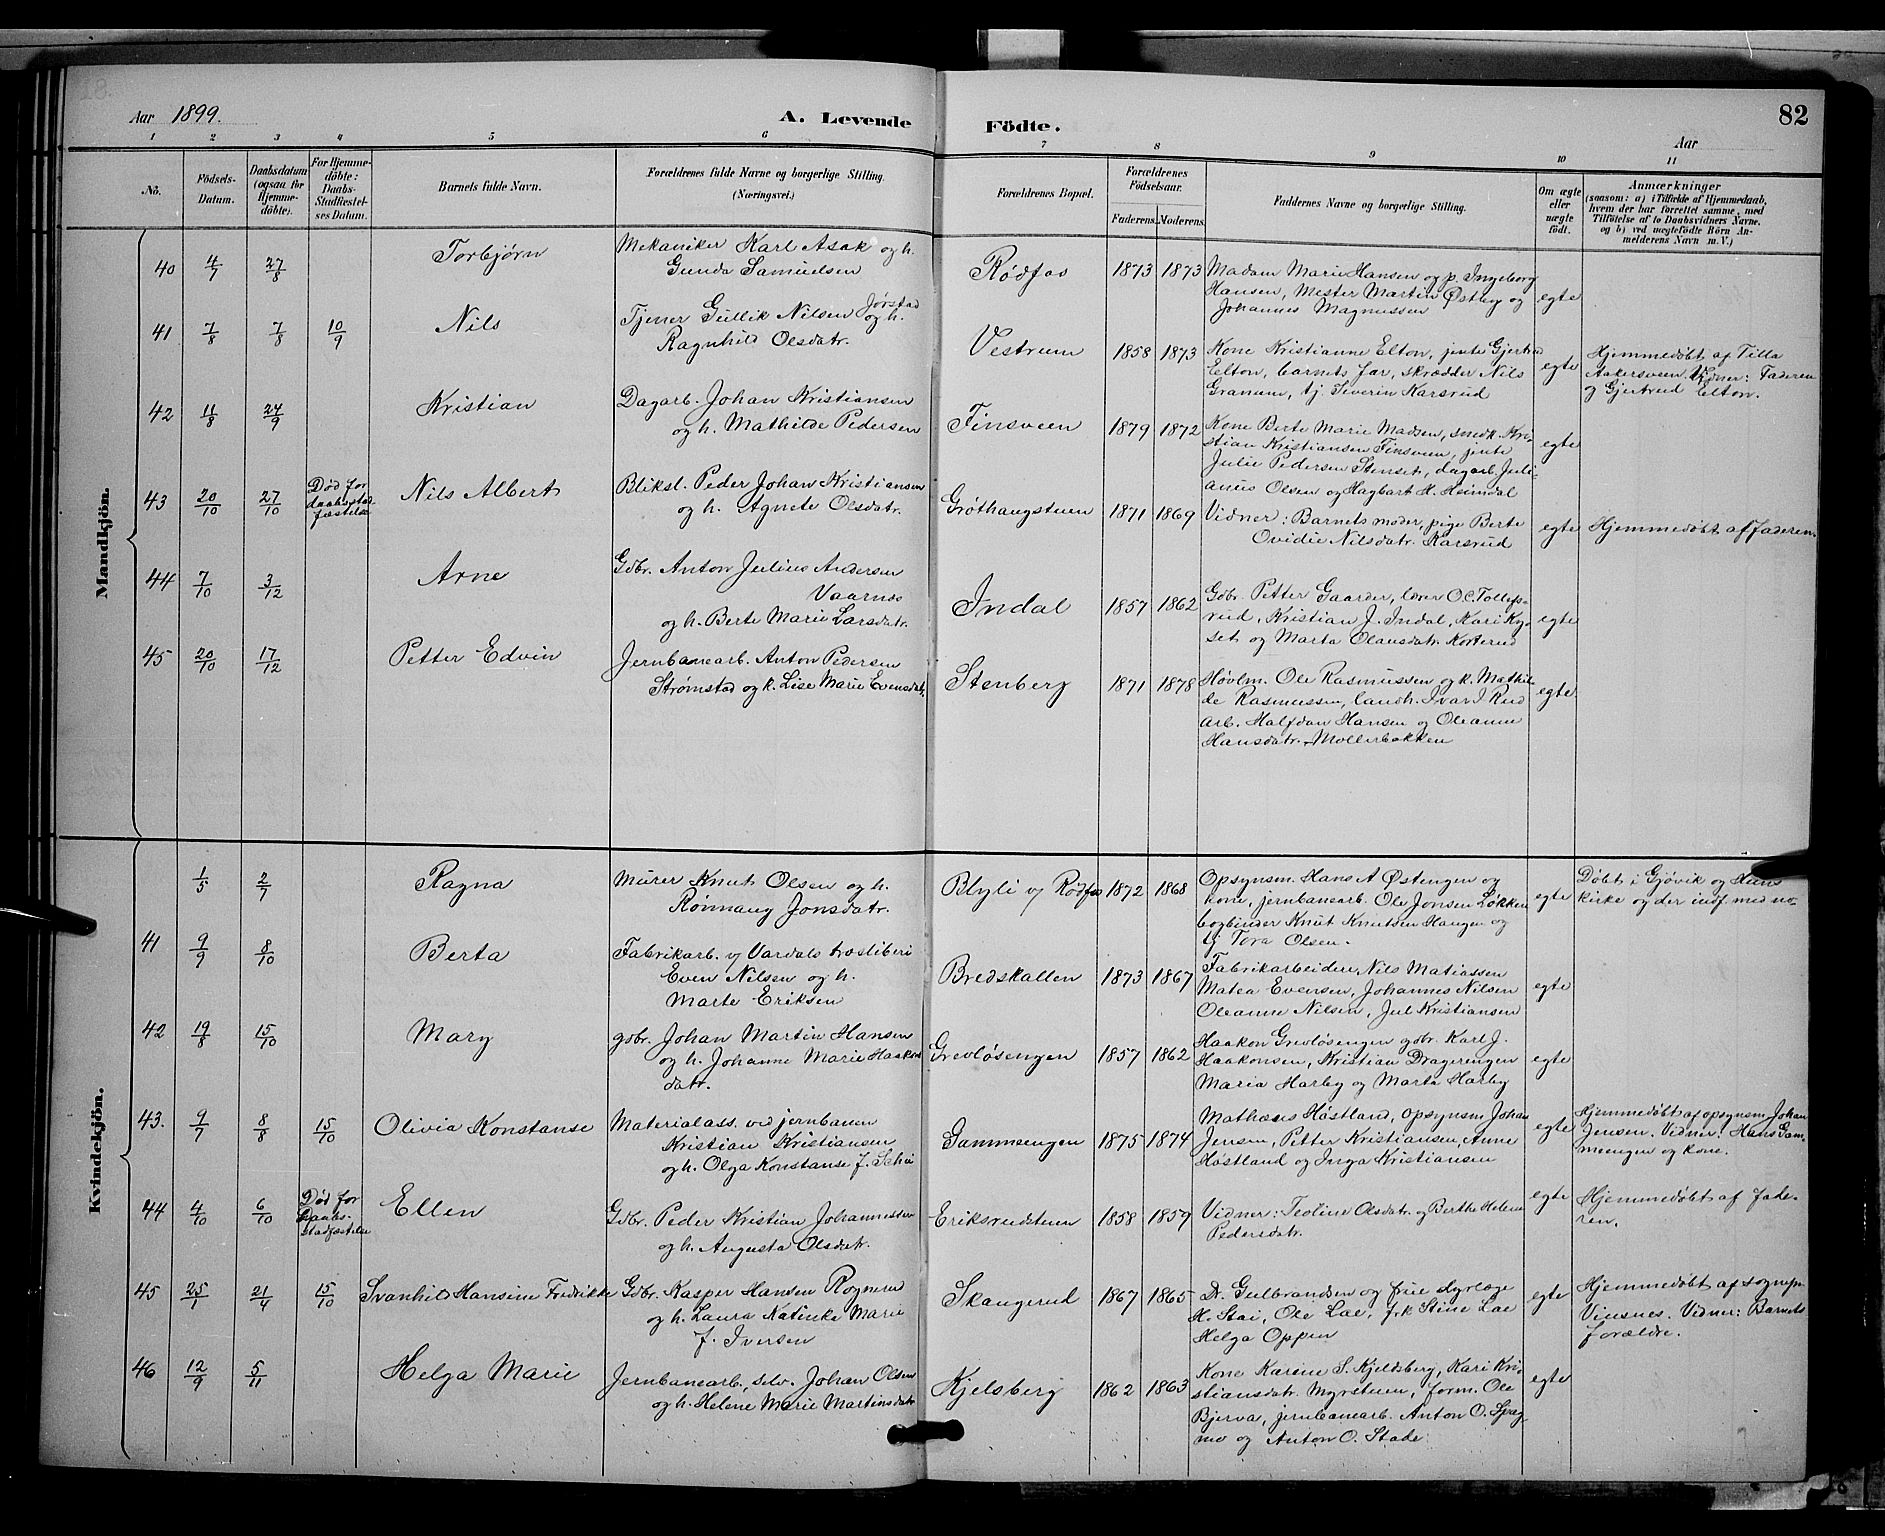 Aar 1899.
A. Levende Födte.
Aar
82
1 2 3 4 5 6 7 8 9 10 11
No.
Födsels-Datum.
Daabsdatum (ogsaa for Hjemmedöbte).
For Hjemmedöbte: Daabs-Stadfæstelses Datum.
Barnets fulde Navn.
Forældrenes fulde Navne og borgerlige Stilling. (Næringsvei.)
Forældrenes Bopæl.
Forældrenes Födselsaar.
Faderens. Moderens.
Faddernes Navne og borgerlige Stilling.
Om ægte eller uægte födt.
Anmærkninger
(saasom: a) i Tilfælde af Hjemmedaab,
hvem der har forrettet samme, med
Tilföielse af to Daabsvidners Navne,
og b) ved uægtefödte Börn Anmelderens Navn m. V.)
Mandkjön.
40 4/7 27/8 Torbjørn
Mekaniker Karl Asak og h.
Gunda Samuelsen
Rødfos 1873 1873
Madam Marie Hansen og p. Ingeborg
Hansen, Mester Martin Østby og
Johannes Magnussen
egte
41 7/8 7/8 10/9 Nils
Tjener Gullik Nilsen Jørstad og h.
Ragnhild Olsdatr.
Vestrum 1858 1873
Kone Kristianne Elton, jente Gjertrud
Elton, barnets far, skrædder Nils
Granum, tj. Siverin Karsrud
egte
Hjemmedøbt af Tilla
Aakersveen. Vidner: Faderen
og Gjertrud Elton.
42 11/8 24/9 Kristian
Dagarb. Johan Kristiansen
og h. Mathilde Pedersen
Finsveen 1879 1872
Kone Berte Marie Madsen, smedk. Kristian
Kristiansen Finsveen, jente
Julie Pedersen Stenset, dagarb. Julianus
Olsen og Hagbart H. Heimdal
egte
43 20/10 27/10 Død før daabsstadfæstelse
Nils Albert
Bliksl. Peder Johan Kristiansen
og h. Agnete Olsdatr.
Grøthaugstuen 1871 1869
Vidner: Barnets moder, pige Berte
Ovidie Nilsdatr. Karsrud
egte
Hjemmedøbt af faderen.
44 7/10 3/12 Arne
Gdbr. Anton Julius Andersen
Vaarnes
og h. Berte Marie Larsdatr.
Indal 1857 1862
Gdbr. Petter Gaarder, lærer O.C. Tollefsrud,
Kristian J. Indal, Kari Kyset
og Marta Olausdatr. Korterud
egte
45 20/10 17/12 Petter Edvin
Jernbanearb. Anton Pedersen
Strømstad og k. Lise Marie Evensdatr.
Stenberg 1871 1878
Høvlm. Ole Rasmussen og k. Mathilde
Rasmussen, landh. Ivar J Rud
arb. Halfdan Hansen og Oleanne
Hansdatr. Møllerbakken
egte
Kvindekjön.
1/5 2/7 Ragna
Murer Knut Olsen og h.
Rønnaug Jonsdatr.
Blyli v/ Rødfos 1872 1868
Opsynsm. Hans A Østengen og
kone, jernbanearb. Ole Jonsen Løkken
bogbinder Knut Knutsen Haugen og
tj Tora Olsen.
egte
Døbt i Gjøvik og Huns
kirke og der indf. med no.
41 9/9 8/10 Berta
Fabrikarb. v/ Vardals træsliberi
Even Nilsen og h.
Marte Eriksen
Bredskallen 1873 1867
Fabrikarbeidere Nils Matiassen
Matea Evensen, Johannes Nilsen
Oleanne Nilsen, Jul Kristiansen
egte
42 19/8 15/10 Mary
gdbr. Johan Martin Hansen
og h. Johanne Marie Haakonsdatr.
Grevløsengen 1857 1862
Haakon Grevløsengen gdbr. Karl J.
Haakonsen, Kristian Dragerengen
Maria Harby og Marta Harby
egte
43. 9/7 8/8 15/10 Olivia Konstanse
Materialass. ved jernbanen
Kristian Kristiansen
og h. Olga Konstanse f. Schie
Gammengen 1875 1874
Mathæus Høstland, opsynsm Johan
Jensen, Petter Kristiansen, Anne
Høstland og Inga Kristiansen
egte
Hjemmedøbt af opsynsm. Johan
Jensen. Vidner: Hans Gammengen
og kone.
44 4/10 6/10 Død før Daabsstadfæstelse
Ellen
Gdbr. Peder Kristian Johannessen
og h. Augusta Olsdatr.
Eriksrudstuen 1858 1859
Vidner: Teoline Olsdatr. og Berthe Helene
Pedersdatr.
egte
Hjemmedøbt af faderen.
45 25/1 21/4 15/10 Svanhild Hansine Fredrikke
Gdbr. Kasper Hansen Rognerud
og h. Laura Natinke Marie
f. Iversen
Skangerud 1867 1865
Dr. Gulbrandsen og frue dyrlæge
H. Stai, Ole Lae, frk Stine Lae
Helga Oppen
egte
Hjemmedøbt af sognepr.
Viesnes. Vidner: Barnets
forældre.
46 12/9 5/11 Helga Marie
Jernbanearb., selv. Johan Olsen
og h. Helene Marie Martinsdatr
Kjelsberg 1862 1863
Kone Karine S. Kjeldsberg, Kari Kristiansdatr.
Myrstuen, form. Ole
Bjerva, jernbanearb. Anton O.
og Anton O. Stade.
egte